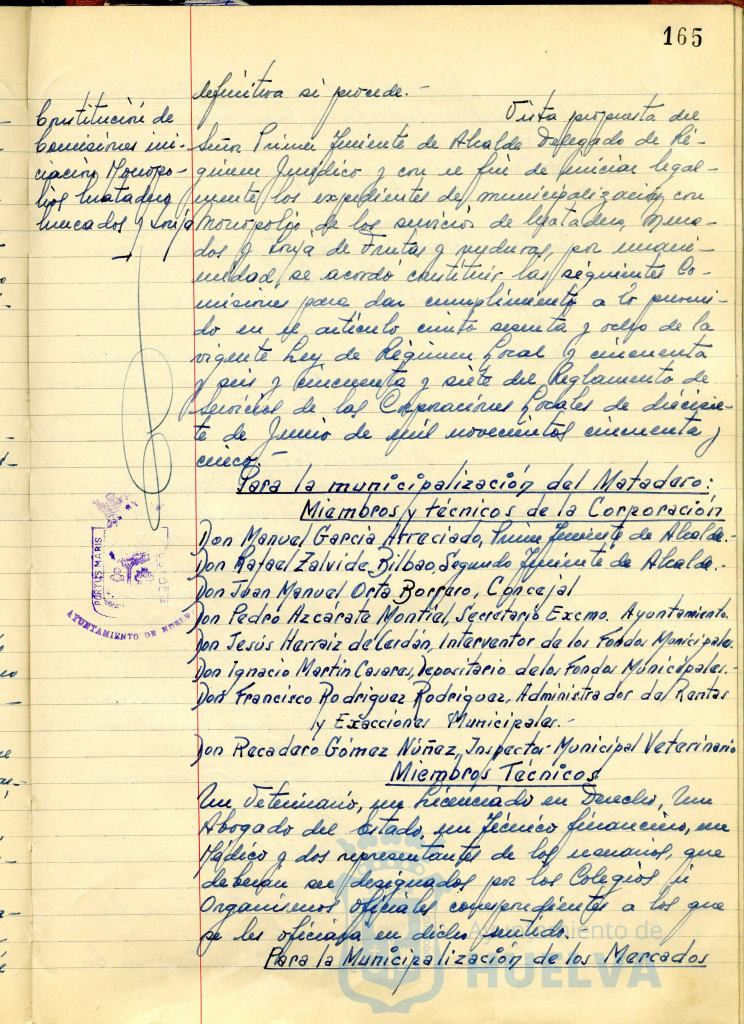 165
definitiva si procede.-
Constitución de
Comisiones ini-
ciación Monopo-
lios Matadero
Mercados y Lonja
Vista propuesta del
Señor Primer Teniente de Alcalde Delegado de Ré-
gimen Jurídico y con el fin de iniciar legal-
mente los expedientes de municipalización con
Monopolio de los servicios de Matadero, Merca-
dos y Lonja de Frutas y verduras, por unani-
midad, se acordó constituir las siguientes Co-
misiones para dar cumplimiento a lo preveni-
do en el artículo ciento sesenta y ocho de la
vigente Ley de Régimen Local y cincuenta
y seis y cincuenta y siete del Reglamento de
Servicios de las Corporaciones Locales de diecisie-
te de Junio de mil novecientos cincuenta y
cinco.-
Para la municipalización del Matadero:
Miembros y técnicos de la Corporación
Don Manuel García Arreciado, Primer Teniente de Alcalde.-
Don Rafael Zalvide Bilbao, Segundo Teniente de Alcalde.-
Don Juan Manuel Orta Borrero, Concejal
Don Pedro Azcárate Montiel, Secretario Excmo. Ayuntamiento.
Don Jesús Herraiz de Cerdán, Interventor de los Fondos Municipales.
Don Ignacio Martin Casares, Depositario de los Fondos Municipales.-
Don Francisco Rodríguez Rodríguez, Administrador de Rentas
y Exacciones Municipales.-
Don Recadero Gómez Núñez, Inspector Municipal Veterinario
Miembros Técnicos
Un Veterinario, un Licenciado en Derecho, Un
Abogado del Estado, un Técnico financiero, un
Médico y dos representantes de los usuarios, que
deberán ser designados por los Colegios u
Organismos oficiales correspondientes a los que
se les oficiará en dicho sentido.
Para la Municipalización de los Mercados
PORTUS MARIS
AYUNTAMIENTO DE HUELVA
Ayuntamiento de
HUELVA